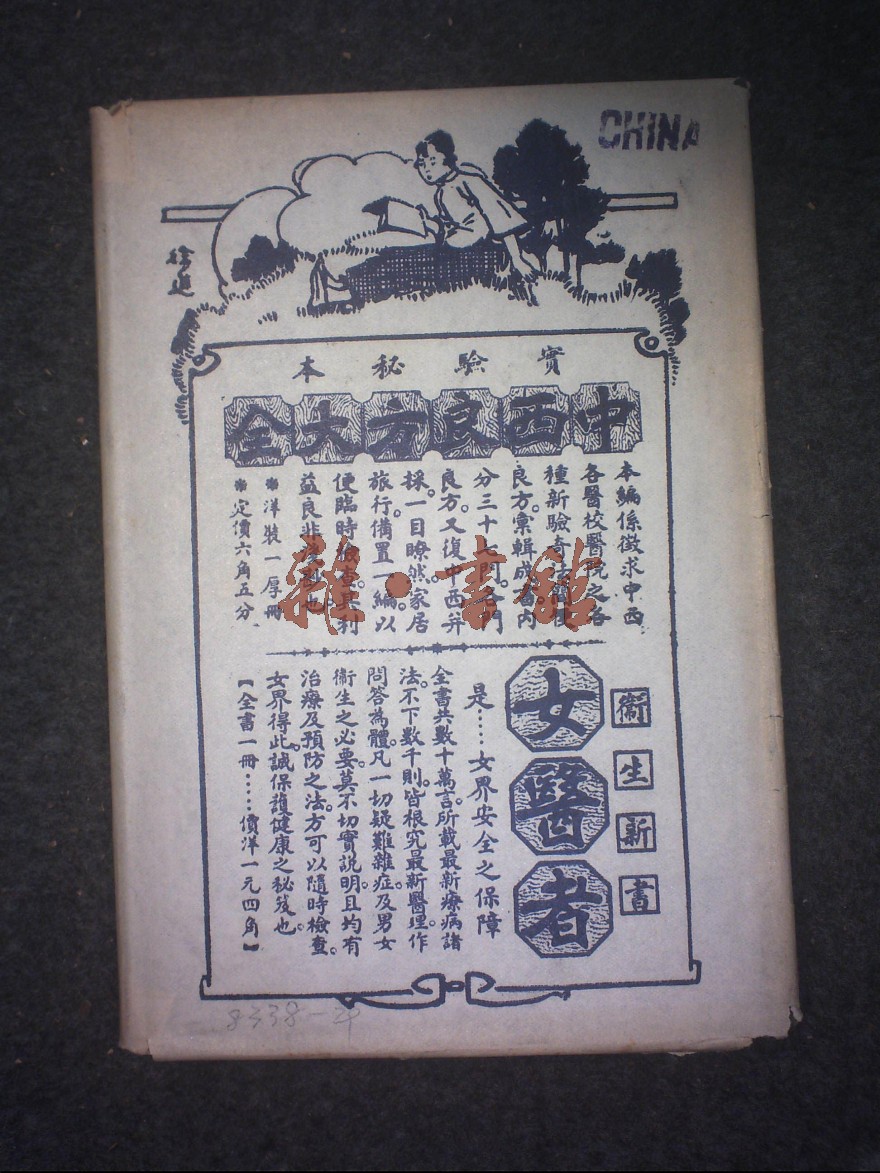 CHINA
實驗秘本
中西良方大全
本編係徵求中西
各醫校醫院之各
種新驗奇
良方。彙輯成書內
分三十七門各門
良方。又復中西并
採。一目瞭然。家居
旅行備置一編。以
便臨時檢查。其利
益良非也
*洋裝一厚冊
*定價六角五分
雜·書館
衞生新書
女醫者
是……女界安全之保障
全書共數十萬言。所載最新療病諸
法。不下數千則。皆根究最新醫理。作
問答為體。凡一切疑難雜症。及男女
衞生之必要。莫不切實說明。且均有
治療及預防之法。方可以隨時檢查。
女界得此。誠保護健康之秘笈也。
【全書一冊……價洋一元四角】